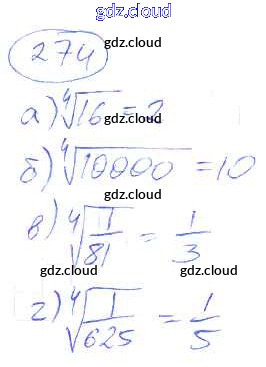 gdz.cloud
274
gdz.cloud
а) ⁴√16 = 2
gdz.cloud
б) ⁴√10000 = 10
gdz.cloud
в) ⁴√(1/81) = 1/3
gdz.cloud gdz.cloud
г) ⁴√(1/625) = 1/5
gdz.cloud